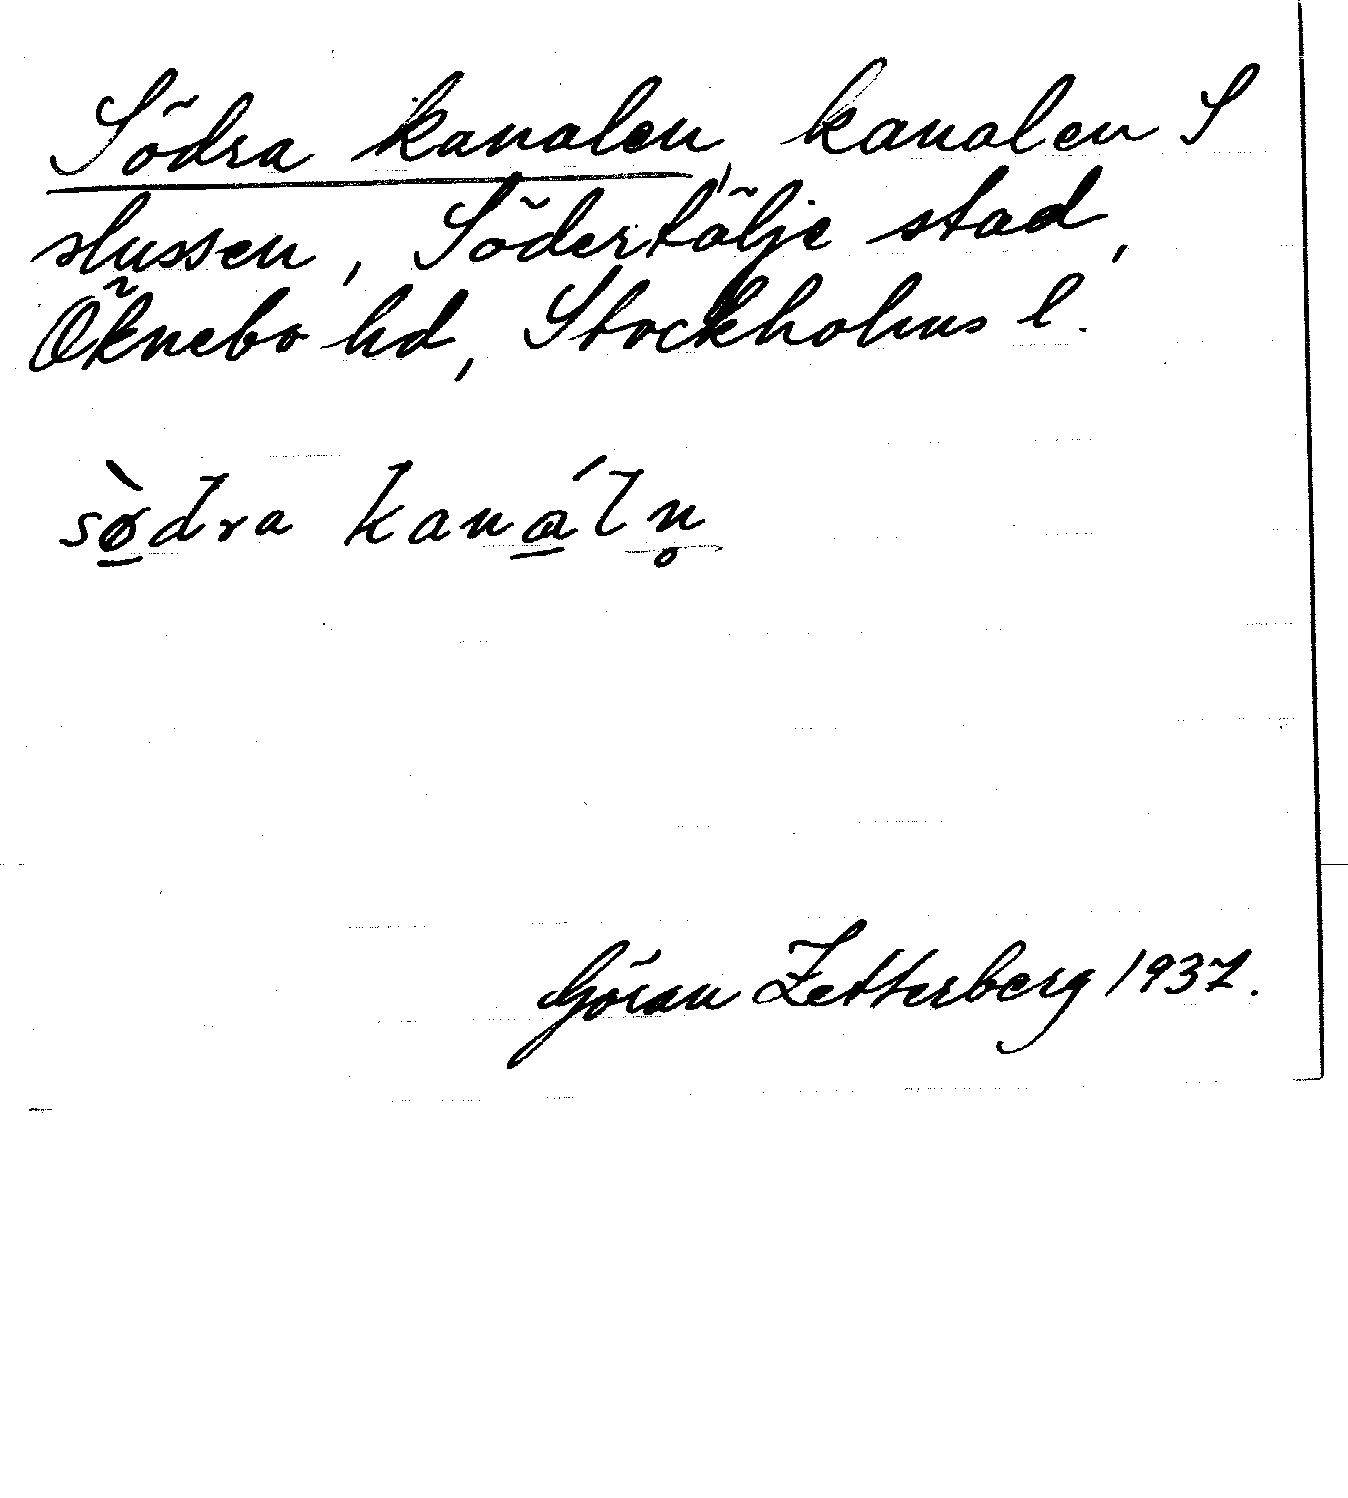 Södra kanalen, kanalen S
slussen, Södertälje stad,
Öknebo hd, Stockholms l.
sø̲̀dra kaná̲ln̥
Göran Zetterberg 1937.